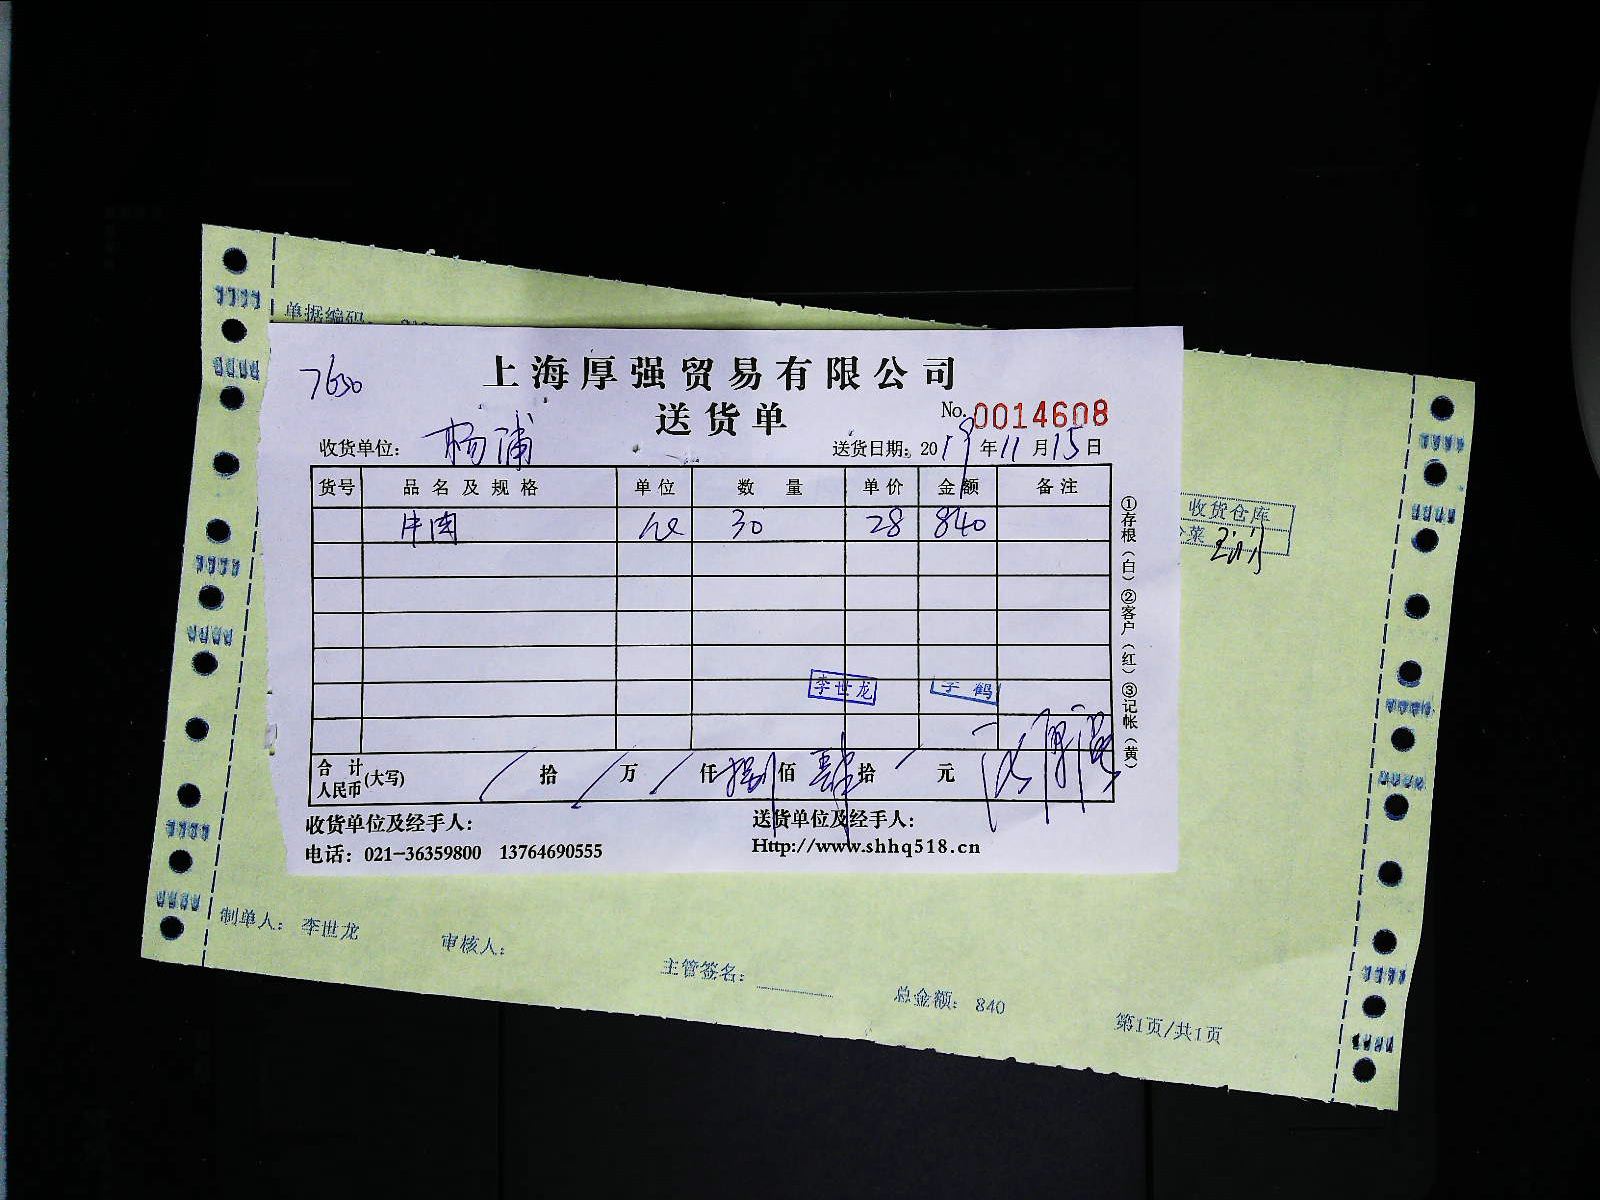 单据编码:
7650
上海厚强贸易有限公司
送货单
No. 0014608
收货单位: 杨浦
送货日期: 2019年11月15日
货号 品名及规格 单位 数量 单价 金额 备注
30 28 840
李世龙 李鹤
合计人民币(大写) / 拾 / 万 / 仟 捌 佰 肆 拾 / 元
收货单位及经手人:
送货单位及经手人:
电话: 021-36359800 13764690555
Http://www.shhq518.cn
①存根(白)②客户(红)③记帐(黄)
收货仓库
菜
制单人: 李世龙
审核人:
主管签名:
总金额: 840
第1页/共1页